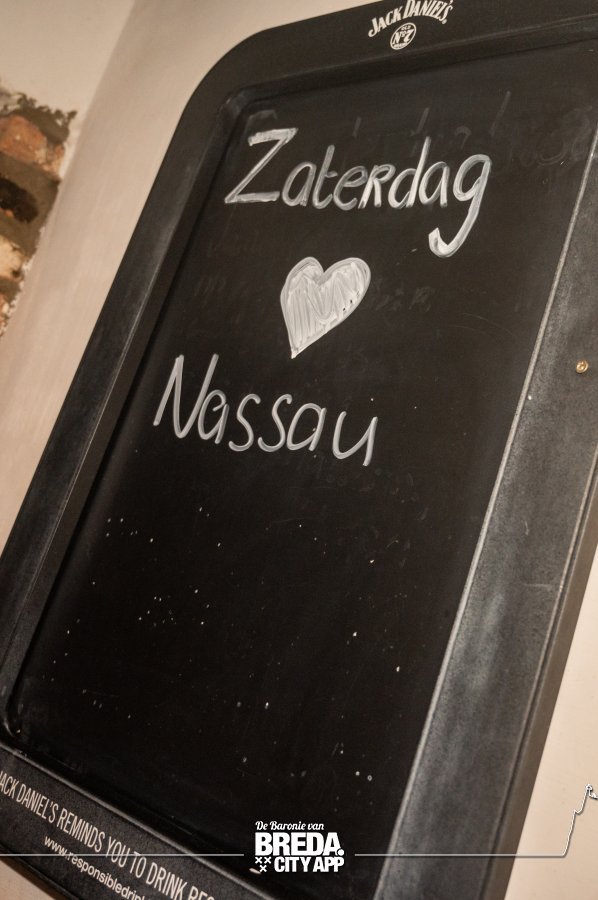 JACK DANIEL'S
OLD
No 7
BRAND
Zaterdag
Nassau
JACK DANIEL'S REMINDS YOU TO DRINK
www.responsibledrin
De Baronie van
BREDA.
CITY APP